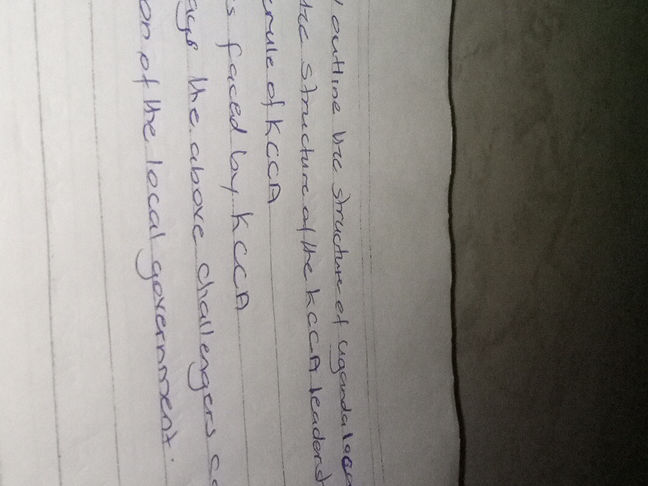 outline the structure of uganda loca
the structure of the KCCA leadersh
erule of KCCA
s faced by KCCA
ays the above challengers ca
on of the local government.